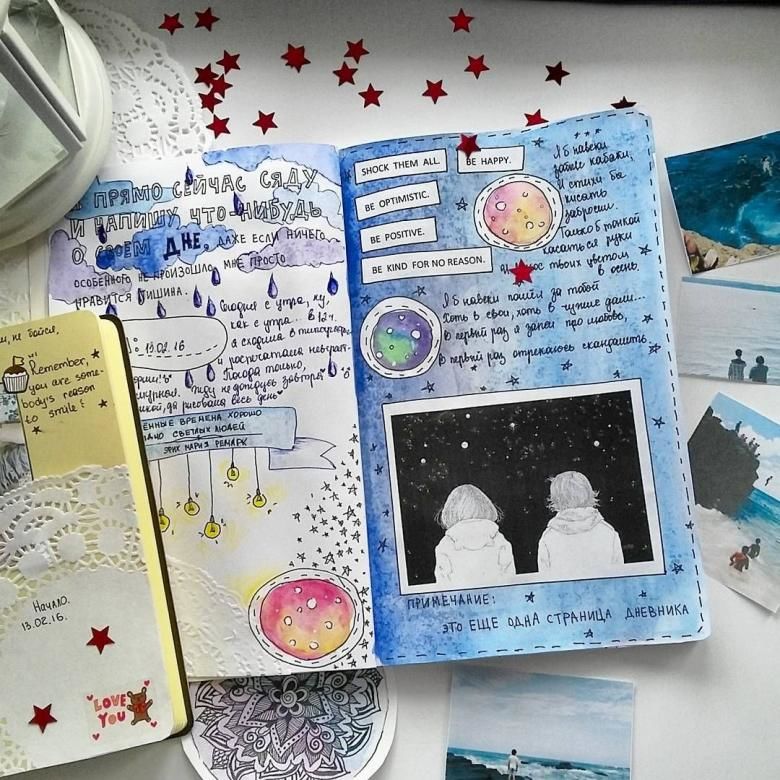 Remember,
you are some-
body's reason
to smile!
Начало.
13.02.16.
LOVE
YOU
ПРЯМО СЕЙЧАС СЯДУ
И НАПИШУ ЧТО-НИБУДЬ
О СВОЕМ ДНЕ, ДАЖЕ ЕСЛИ НИЧЕГО
ОСОБЕННОГО НЕ ПРОИЗОШЛО. МНЕ ПРОСТО
НРАВИТСЯ ТИШИНА.
13.02.16
Сегодня с утра, ну,
как с утра.. в 12 ч.
я сходила в типографию
и распечатала
Погода только,
Жду не дождусь завтра
рисовала весь день
ВРЕМЕНА ХОРОШО
СВЕТЛЫХ ЛЮДЕЙ
ЭРИХ МАРИЯ РЕМАРК
SHOCK THEM ALL.
BE HAPPY.
BE OPTIMISTIC.
BE POSITIVE.
BE KIND FOR NO REASON.
Я б навеки
забыл кабаки,
И стихи бы
писать
забросил.
Только б тонкой
касаться руки
волос твоих цветом
в осень.
Я б навеки пошёл за тобой
Хоть в свои, хоть в чужие дали...
В первый раз я запел про любовь,
В первый раз отрекаюсь скандалить.
ПРИМЕЧАНИЕ:
ЭТО ЕЩЕ ОДНА СТРАНИЦА ДНЕВНИКА